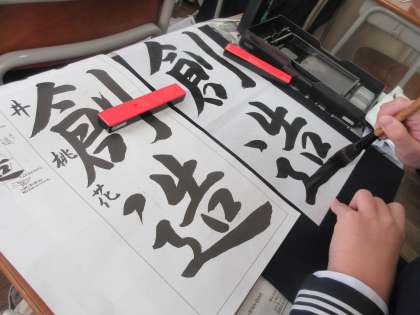 創造
創造
井桃花